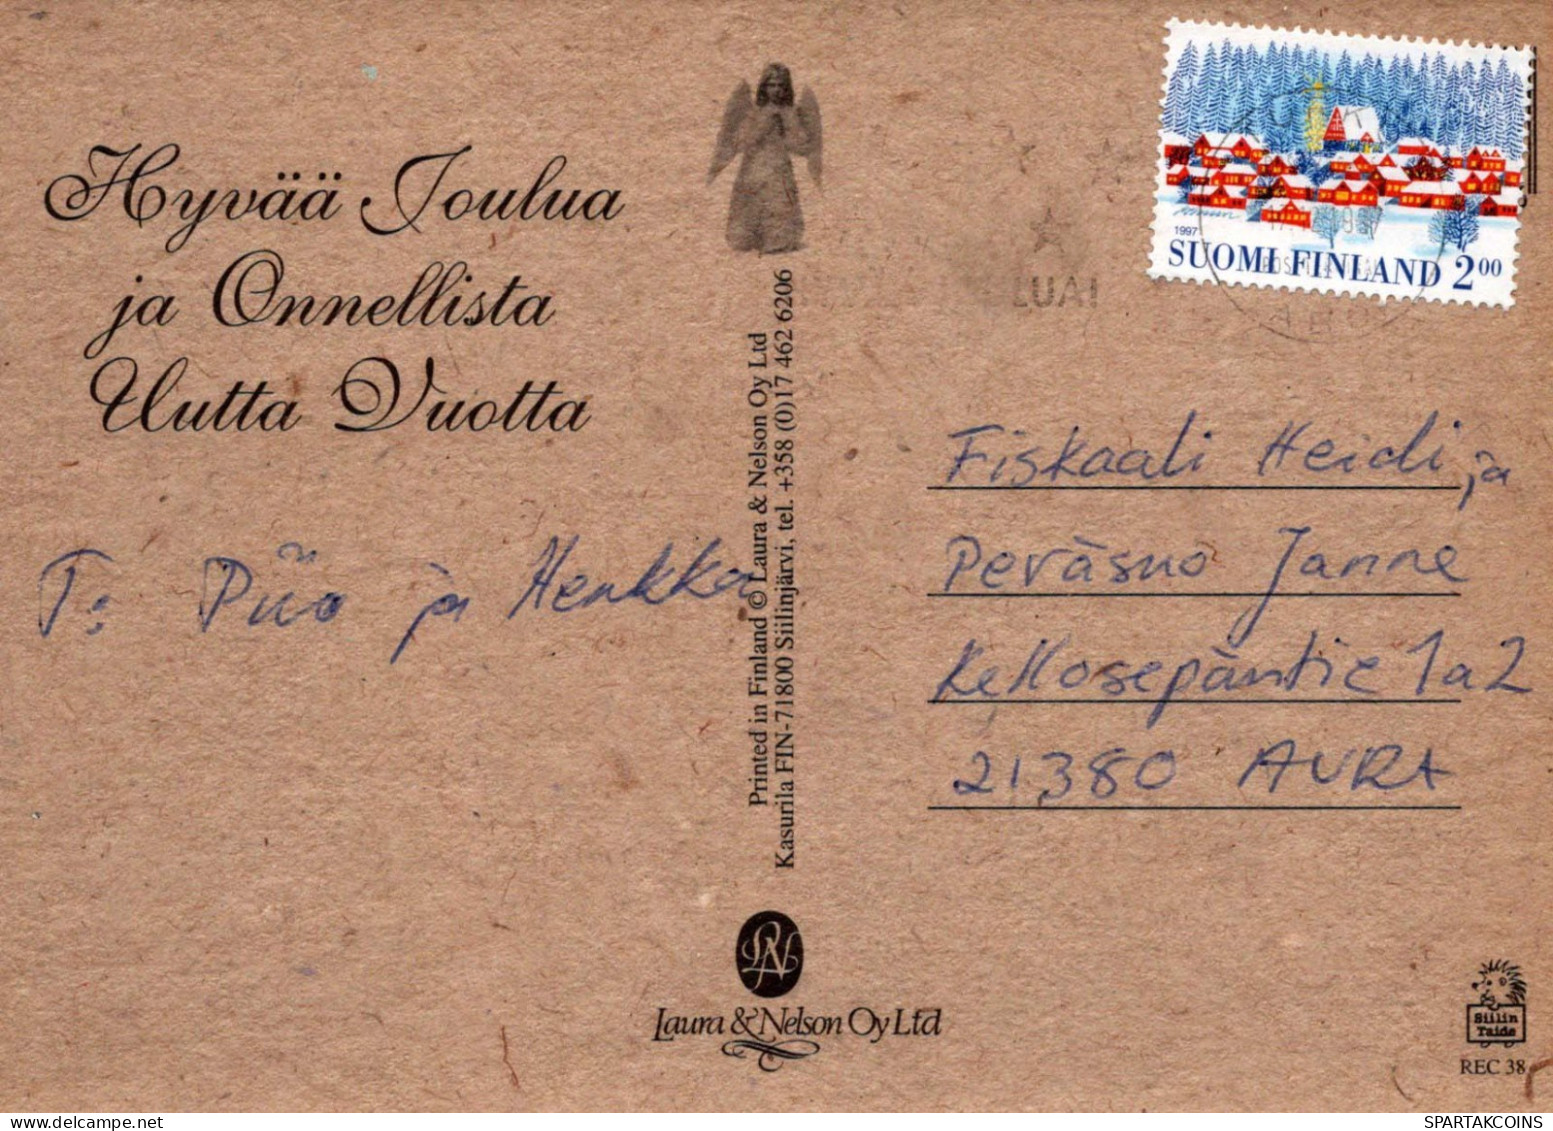 Hyvää Joulua
ja Onnellista
Uutta Vuotta
T: Piio ja Henkka
Printed in Finland © Laura & Nelson Oy Ltd
Kasurila FIN-71800 Siilinjärvi, tel. +358 (0)17 462 6206
1997
SUOMI FINLAND 200
LUA!
Fiskaali Heidi ja
Peräsuo Janne
Kellosepäntie 1a2
21380 AURA
LN
Laura & Nelson Oy Ltd
Siilin
Taide
REC 38
SPARTAKCOINS